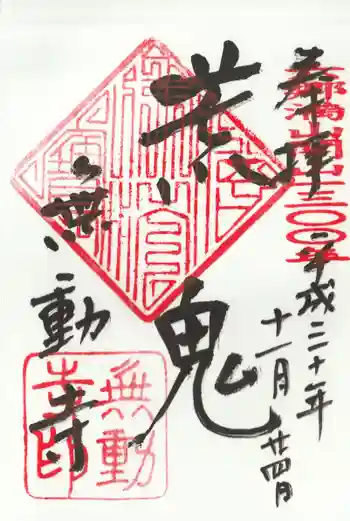 奉拝
六郷満山開山一三〇〇年
平成三十年
十一月廿四日
荒鬼
無動寺
無動
寺印